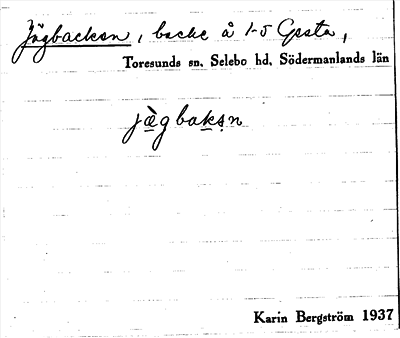 Jägbacken, backe å 1-5 Gesta,
Toresunds sn, Selebo hd, Södermanlands län
jägbakən
Karin Bergström 1937